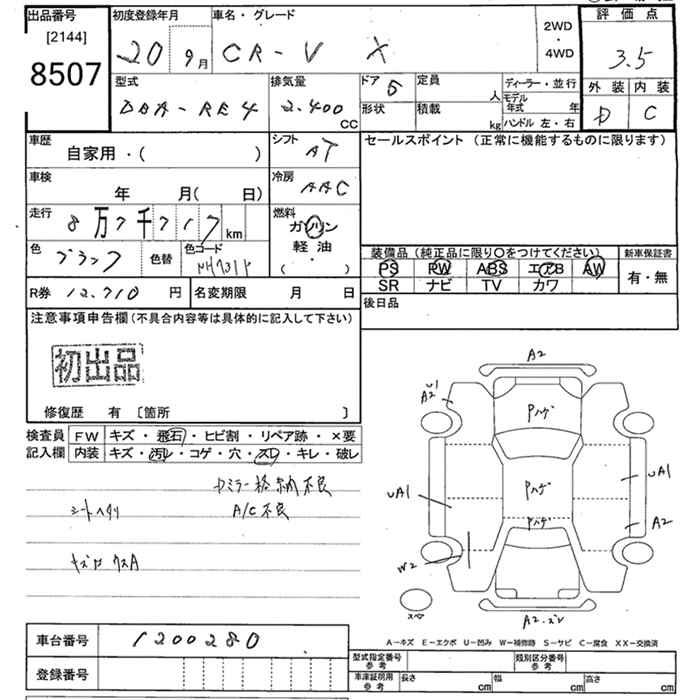 出品番号
[2144]
8507
初度登録年月
20 9月
車名・グレード
CR-V X
2WD
・
4WD
評価点
3.5
外装 内装
D C
型式
DBA-RE4
排気量
2.400
CC
ドア 5
形状
定員
人
積載
kg
ディーラー・並行
モデル
年式 年
ハンドル 左・右
車歴
自家用・( )
シフト
AT
セールスポイント (正常に機能するものに限ります)
車検
年 月( 日)
冷房
AAC
走行
8万7千717km
燃料
ガソリン
軽油
( ・ )
色
ブラック
色替
色コード
装備品 (純正品に限り〇をつけてください)
PS PW ABS エアB AW
SR ナビ TV カワ
新車保証書
有・無
R券 12.710 円
名変期限 月 日
後日品
注意事項申告欄 (不具合内容等は具体的に記入して下さい)
初出品
修復歴 有 〔箇所 〕
検査員
記入欄
FW キズ・飛石・ヒビ割・リペア跡・×要
内装 キズ・汚レ・コゲ・穴・スレ・キレ・破レ
ミラー格納不良
シートヘタリ A/C不良
A2
U1
A2
Pハゲ
UA1
Pハゲ
UA1
Pハゲ
A2
W2
スペア
A2・ズレ
A-キズ E-エクボ U-凹み W-補修跡 S-サビ C-腐食 XX-交換済
車台番号 1200280
登録番号
型式指定番号
参考
類別区分番号
参考
車庫証明用
参考
長さ cm
幅 cm
高さ cm